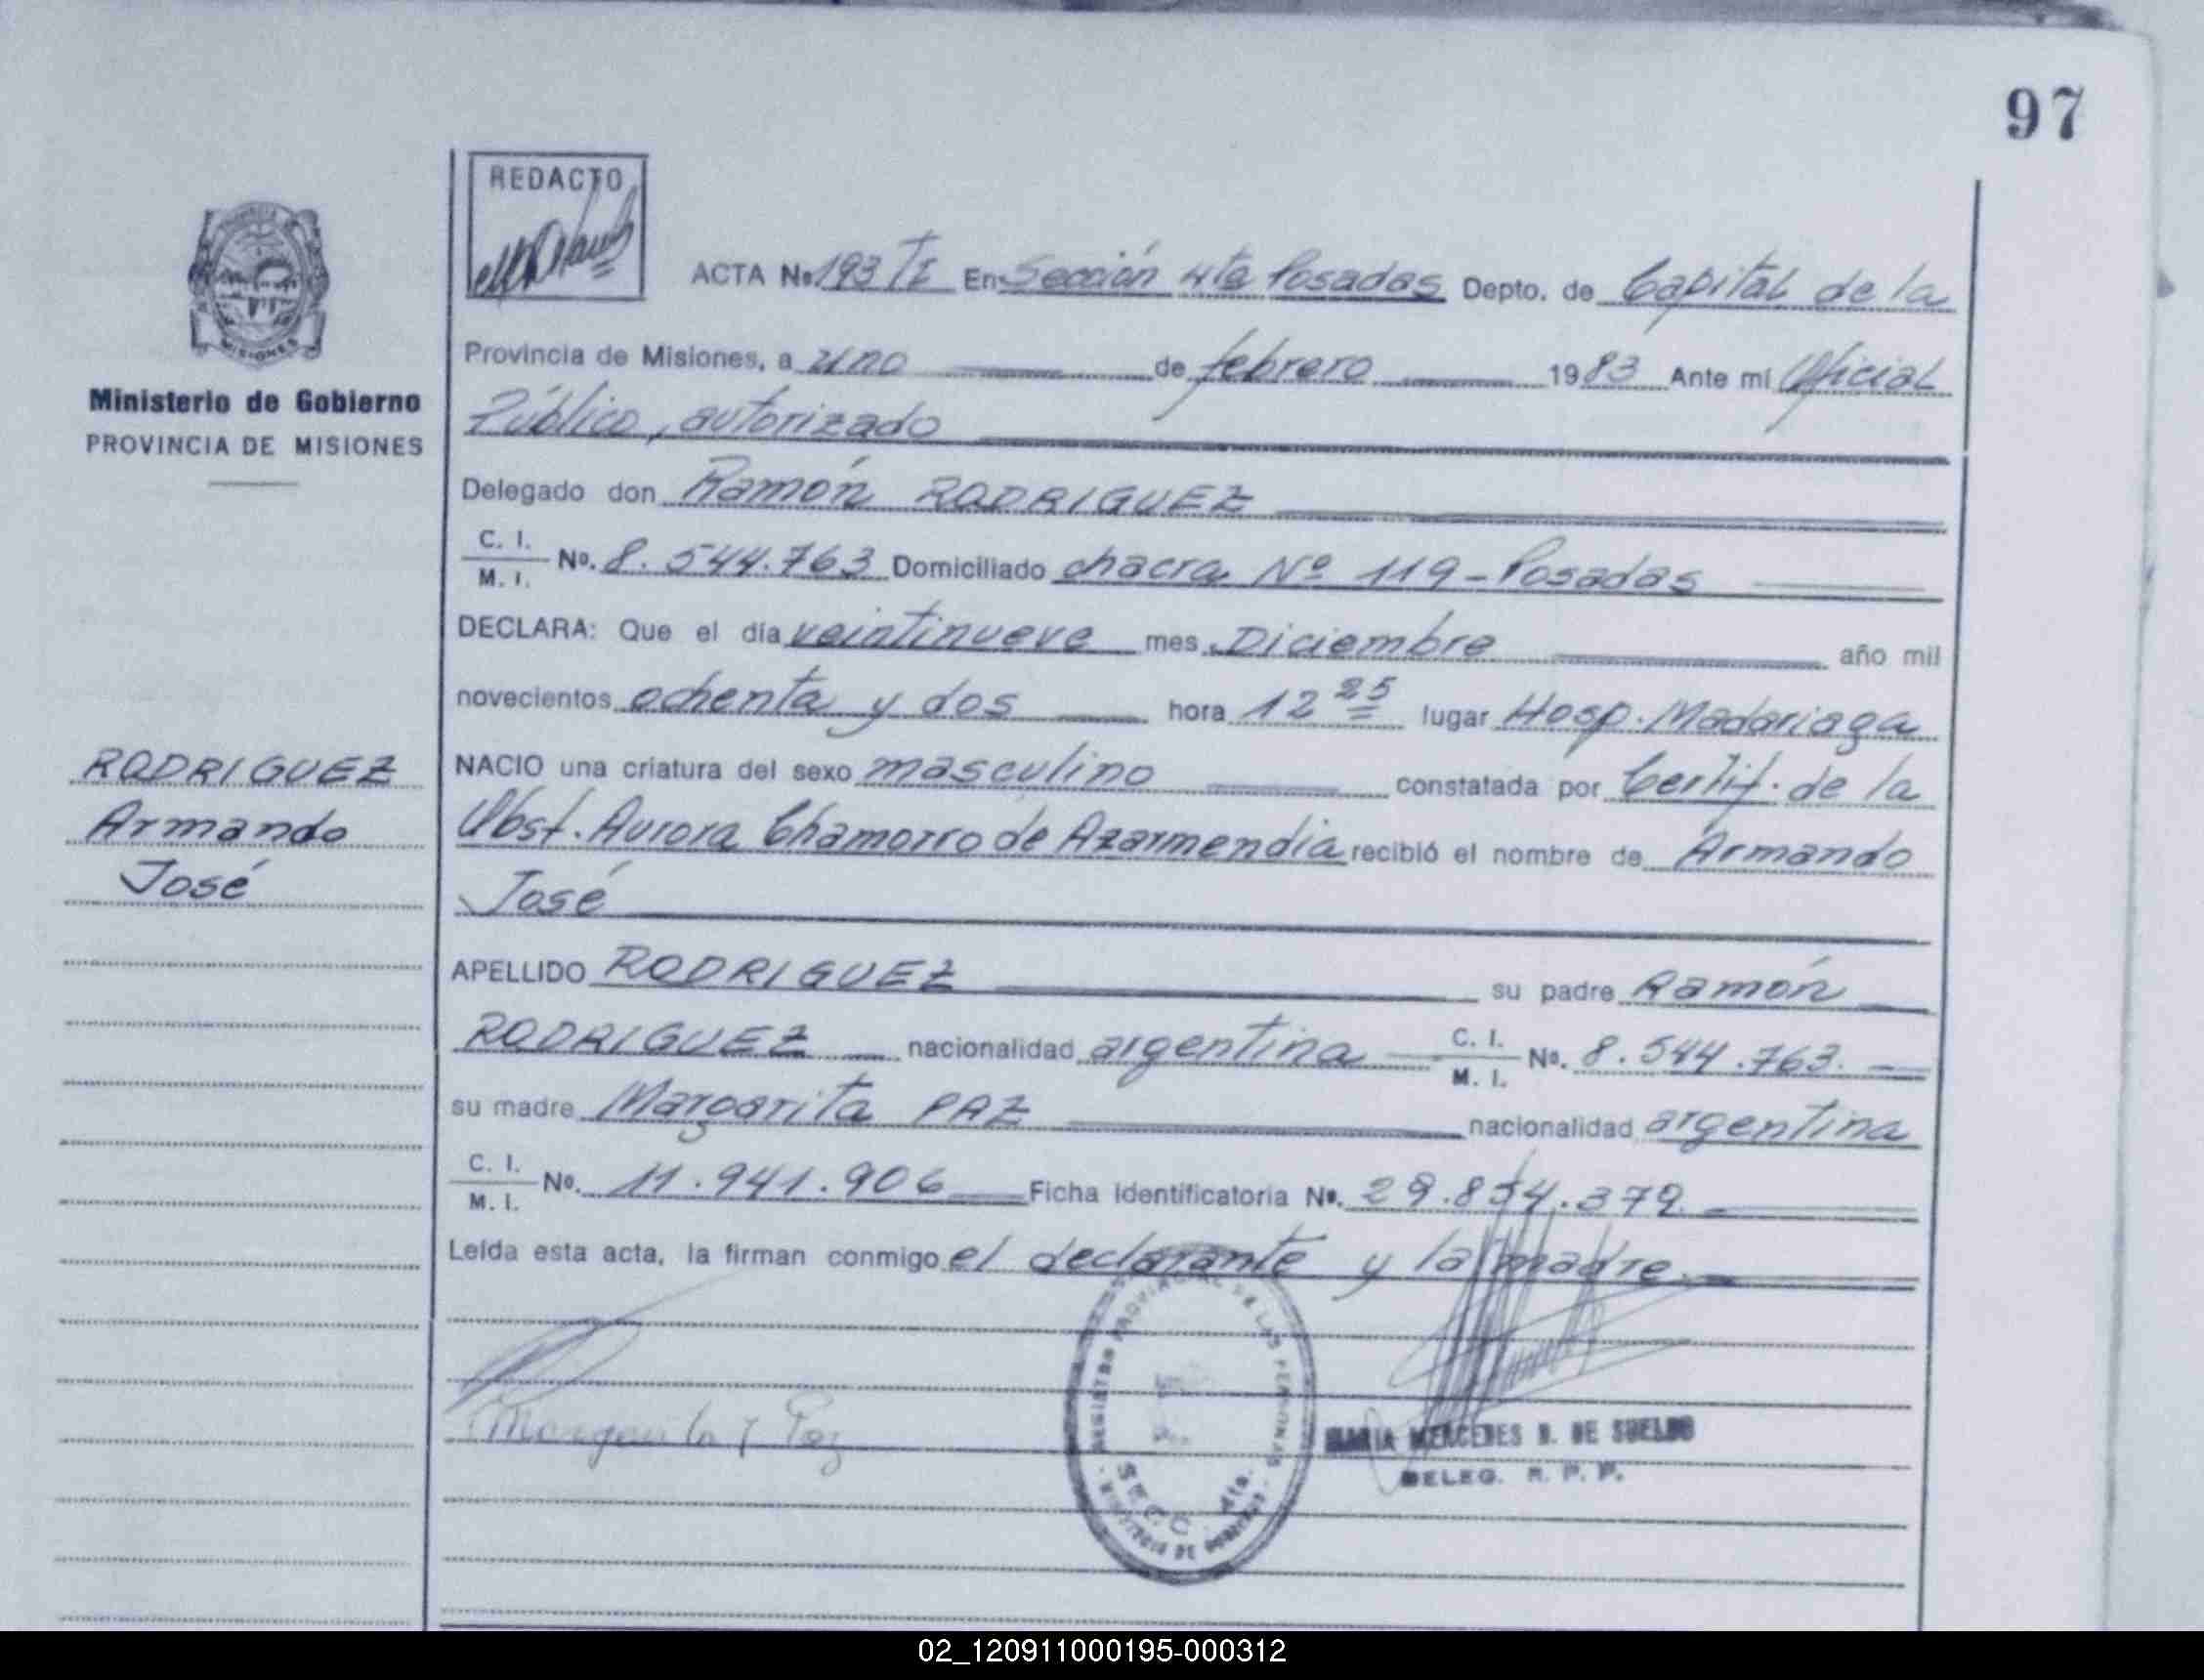 97
REDACTO
ACTA No. 193 TI En Sección 4ta Posadas Depto. de Capital de la
Provincia de Misiones, a uno de febrero 1983 Ante mí Oficial
Público, autorizado
Ministerio de Gobierno
PROVINCIA DE MISIONES
Delegado don Ramón RODRIGUEZ
C. I.
M. I. No. 8.544.763 Domiciliado chacra Nº 119-Posadas
DECLARA: Que el día veintinueve mes Diciembre año mil
novecientos ochenta y dos hora 12 25 lugar Hosp. Madariaga
RODRIGUEZ
Armando
José
NACIO una criatura del sexo masculino constatada por Certif. de la
Obst. Aurora Chamorro de Azarmendia recibió el nombre de Armando
José
APELLIDO RODRIGUEZ su padre Ramón
RODRIGUEZ nacionalidad argentina C. I.
M. I. No. 8.544.763.
su madre Margarita PAZ nacionalidad argentina
C. I.
M. I. No. 11.941.906 Ficha Identificatoria No. 29.854.379
Leída esta acta, la firman conmigo el declarante y la madre.
REGISTRO PROVINCIAL DE LAS PERSONAS
SECC. 4ta.
PROVINCIA DE MISIONES
Margarita Paz
MARIA MERCEDES B. DE SUELDO
DELEG. R. P. P.
MISIONES
02_120911000195-000312